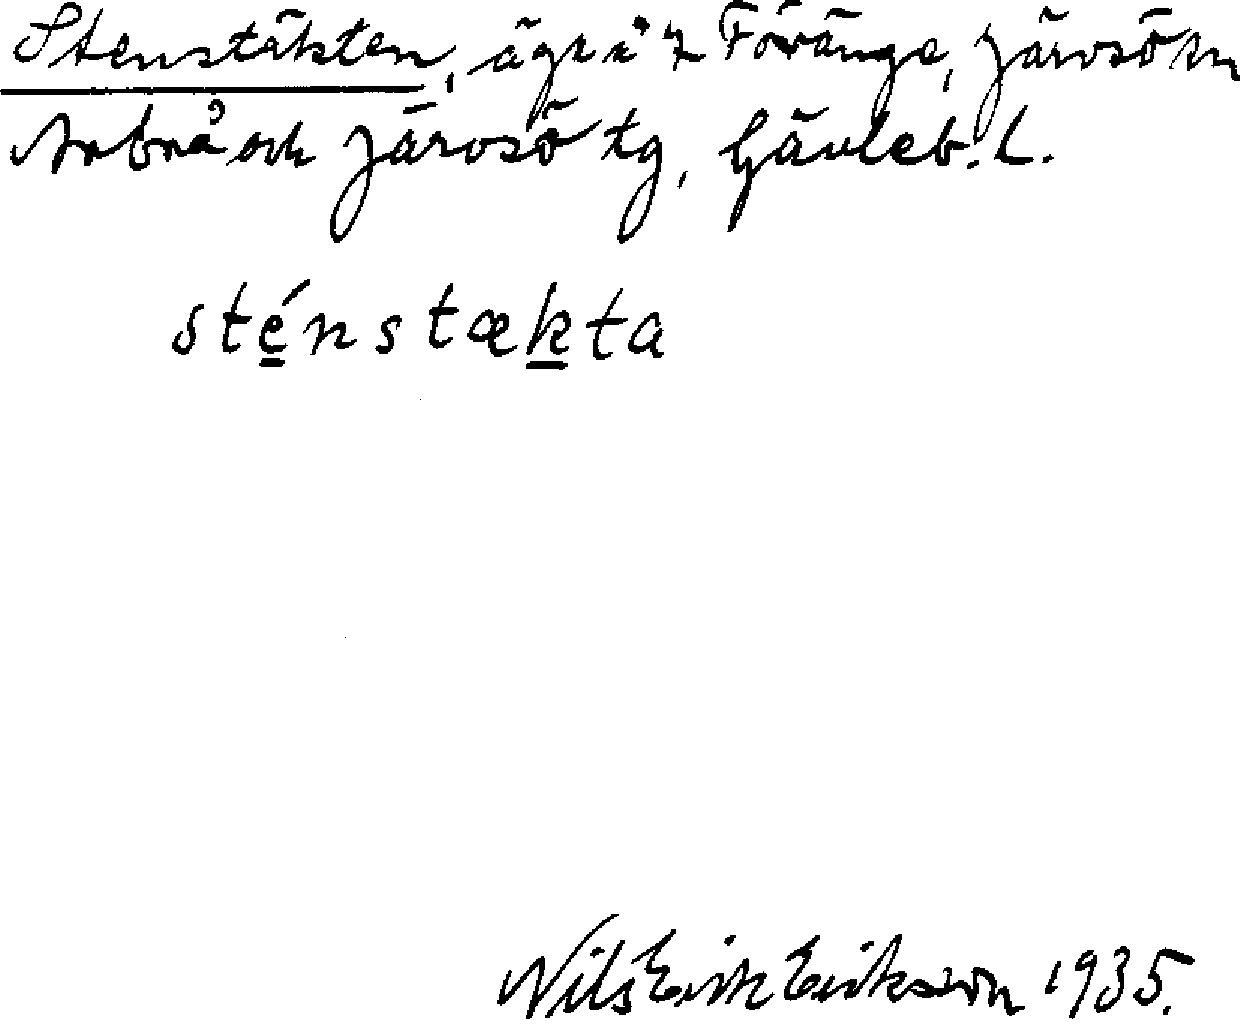 Stenstäkten, ägor i 7 Föränge, Järvsö sn
Arbrå och Järvsö tg, Gävleb. L.
sténstækta
Nils Erik Eriksson 1935.